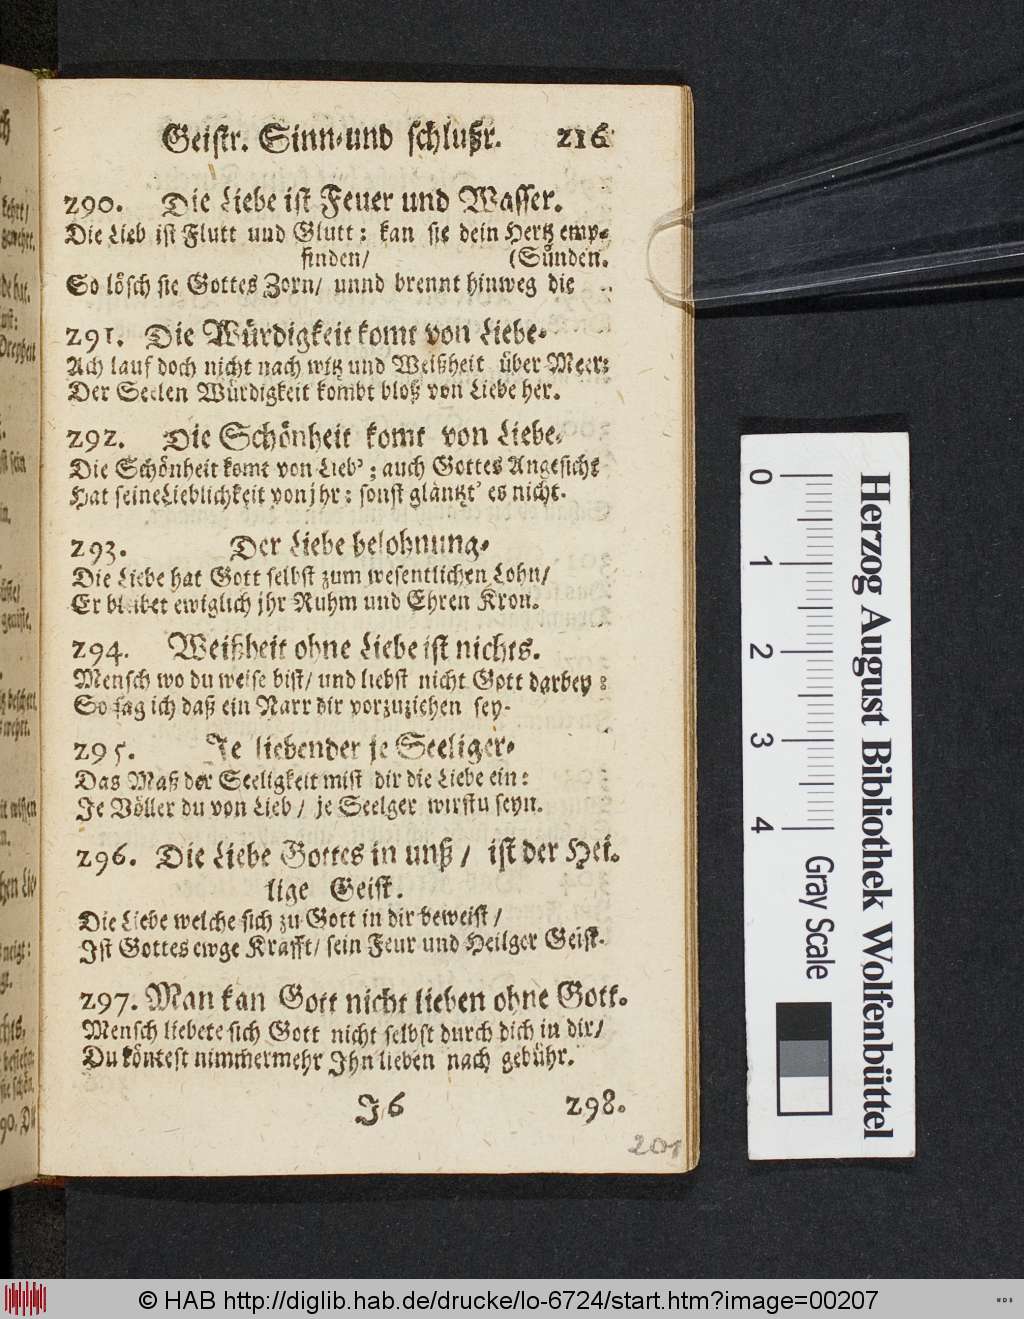 Geistr. Sinn-und schlußr. 216
290. Die Liebe ist Feuer und Wasser.
Die Lieb ist Flutt und Glutt: kan sie dein Hertz emp-
finden/ (Sünden.
So lösch sie Gottes Zorn/ unnd brennt hinweg die
291. Die Würdigkeit komt von Liebe.
Ach lauf doch nicht nach witz und Weißheit über Meer:
Der Seelen Würdigkeit kombt bloß von Liebe her.
292. Die Schönheit komt von Liebe.
Die Schönheit komt von Lieb'; auch Gottes Angesicht
Hat seine Lieblichkeit von jhr: sonst gläntzt' es nicht.
293. Der Liebe belohnung.
Die Liebe hat Gott selbst zum wesentlichen Lohn/
Er bleibet ewiglich jhr Ruhm und Ehren Kron.
294. Weißheit ohne Liebe ist nichts.
Mensch wo du weise bist/ und liebst nicht Gott darbey:
So sag ich daß ein Narr dir vorzuziehen sey.
295. Je liebender je Seeliger.
Das Maß der Seeligkeit mist dir die Liebe ein:
Je Völler du von Lieb/ je Seelger wirstu seyn.
296. Die Liebe Gottes in unß/ ist der Hei-
lige Geist.
Die Liebe welche sich zu Gott in dir beweist/
Ist Gottes ewge Krafft/ sein Feur und Heilger Geist.
297. Man kan Gott nicht lieben ohne Gott.
Mensch liebete sich Gott nicht selbst durch dich in dir/
Du köntest nimmermehr Jhn lieben nach gebühr.
J 6 298.
201
0 1 2 3 4
Gray Scale
Herzog August Bibliothek Wolfenbüttel
© HAB http://diglib.hab.de/drucke/lo-6724/start.htm?image=00207
WDB